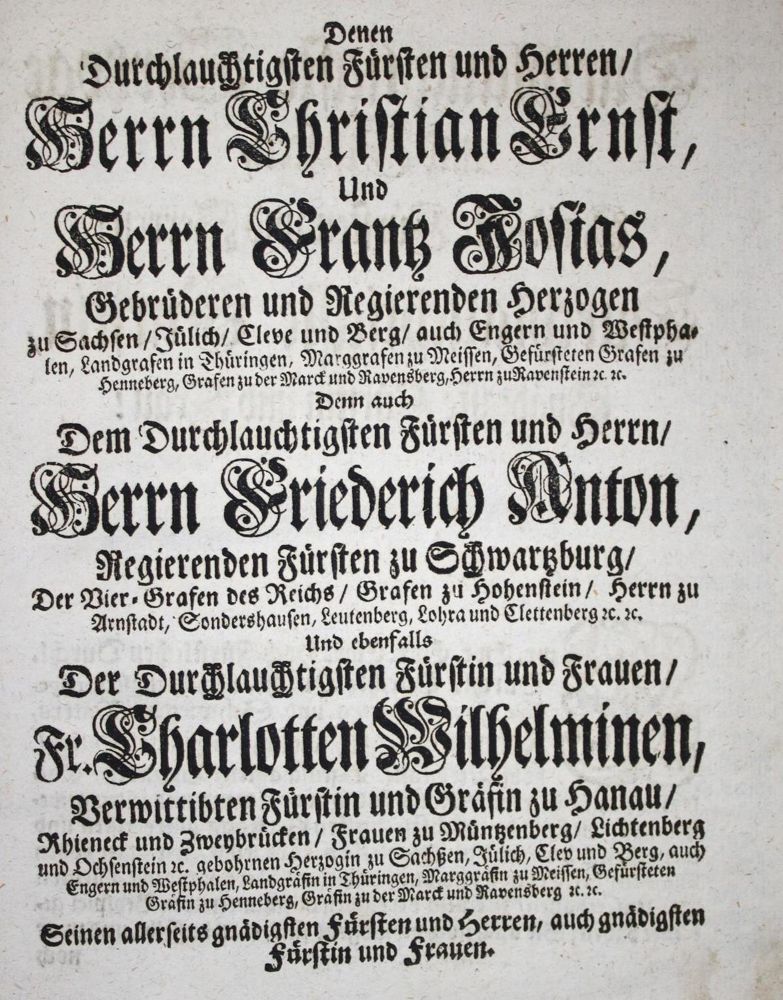 Denen
Durchlauchtigsten Fürsten und Herren/
Herrn Christian Ernst,
Und
Herrn Frantz Josias,
Gebrüderen und Regierenden Herzogen
zu Sachsen/ Jülich/ Cleve und Berg/ auch Engern und Westpha-
len, Landgrafen in Thüringen, Marggrafen zu Meissen, Gefürsteten Grafen zu
Henneberg, Grafen zu der Marck und Ravensberg, Herrn zu Ravenstein ꝛc. ꝛc.
Denn auch
Dem Durchlauchtigsten Fürsten und Herrn/
Herrn Friederich Anton,
Regierenden Fürsten zu Schwartzburg/
Der Vier-Grafen des Reichs/ Grafen zu Hohenstein/ Herrn zu
Arnstadt, Sondershausen, Leutenberg, Lohra und Clettenberg ꝛc. ꝛc.
Und ebenfalls
Der Durchlauchtigsten Fürstin und Frauen/
Fr. Charlotten Wilhelminen,
Verwittibten Fürstin und Gräfin zu Hanau/
Rhieneck und Zweybrücken/ Frauen zu Müntzenberg/ Lichtenberg
und Ochsenstein ꝛc. gebohrnen Herzogin zu Sachßen, Jülich, Clev und Berg, auch
Engern und Westphalen, Landgräfin in Thüringen, Marggräfin zu Meissen, Gefürsteten
Gräfin zu Henneberg, Gräfin zu der Marck und Ravensberg ꝛc. ꝛc.
Seinen allerseits gnädigsten Fürsten und Herren, auch gnädigsten
Fürstin und Frauen.